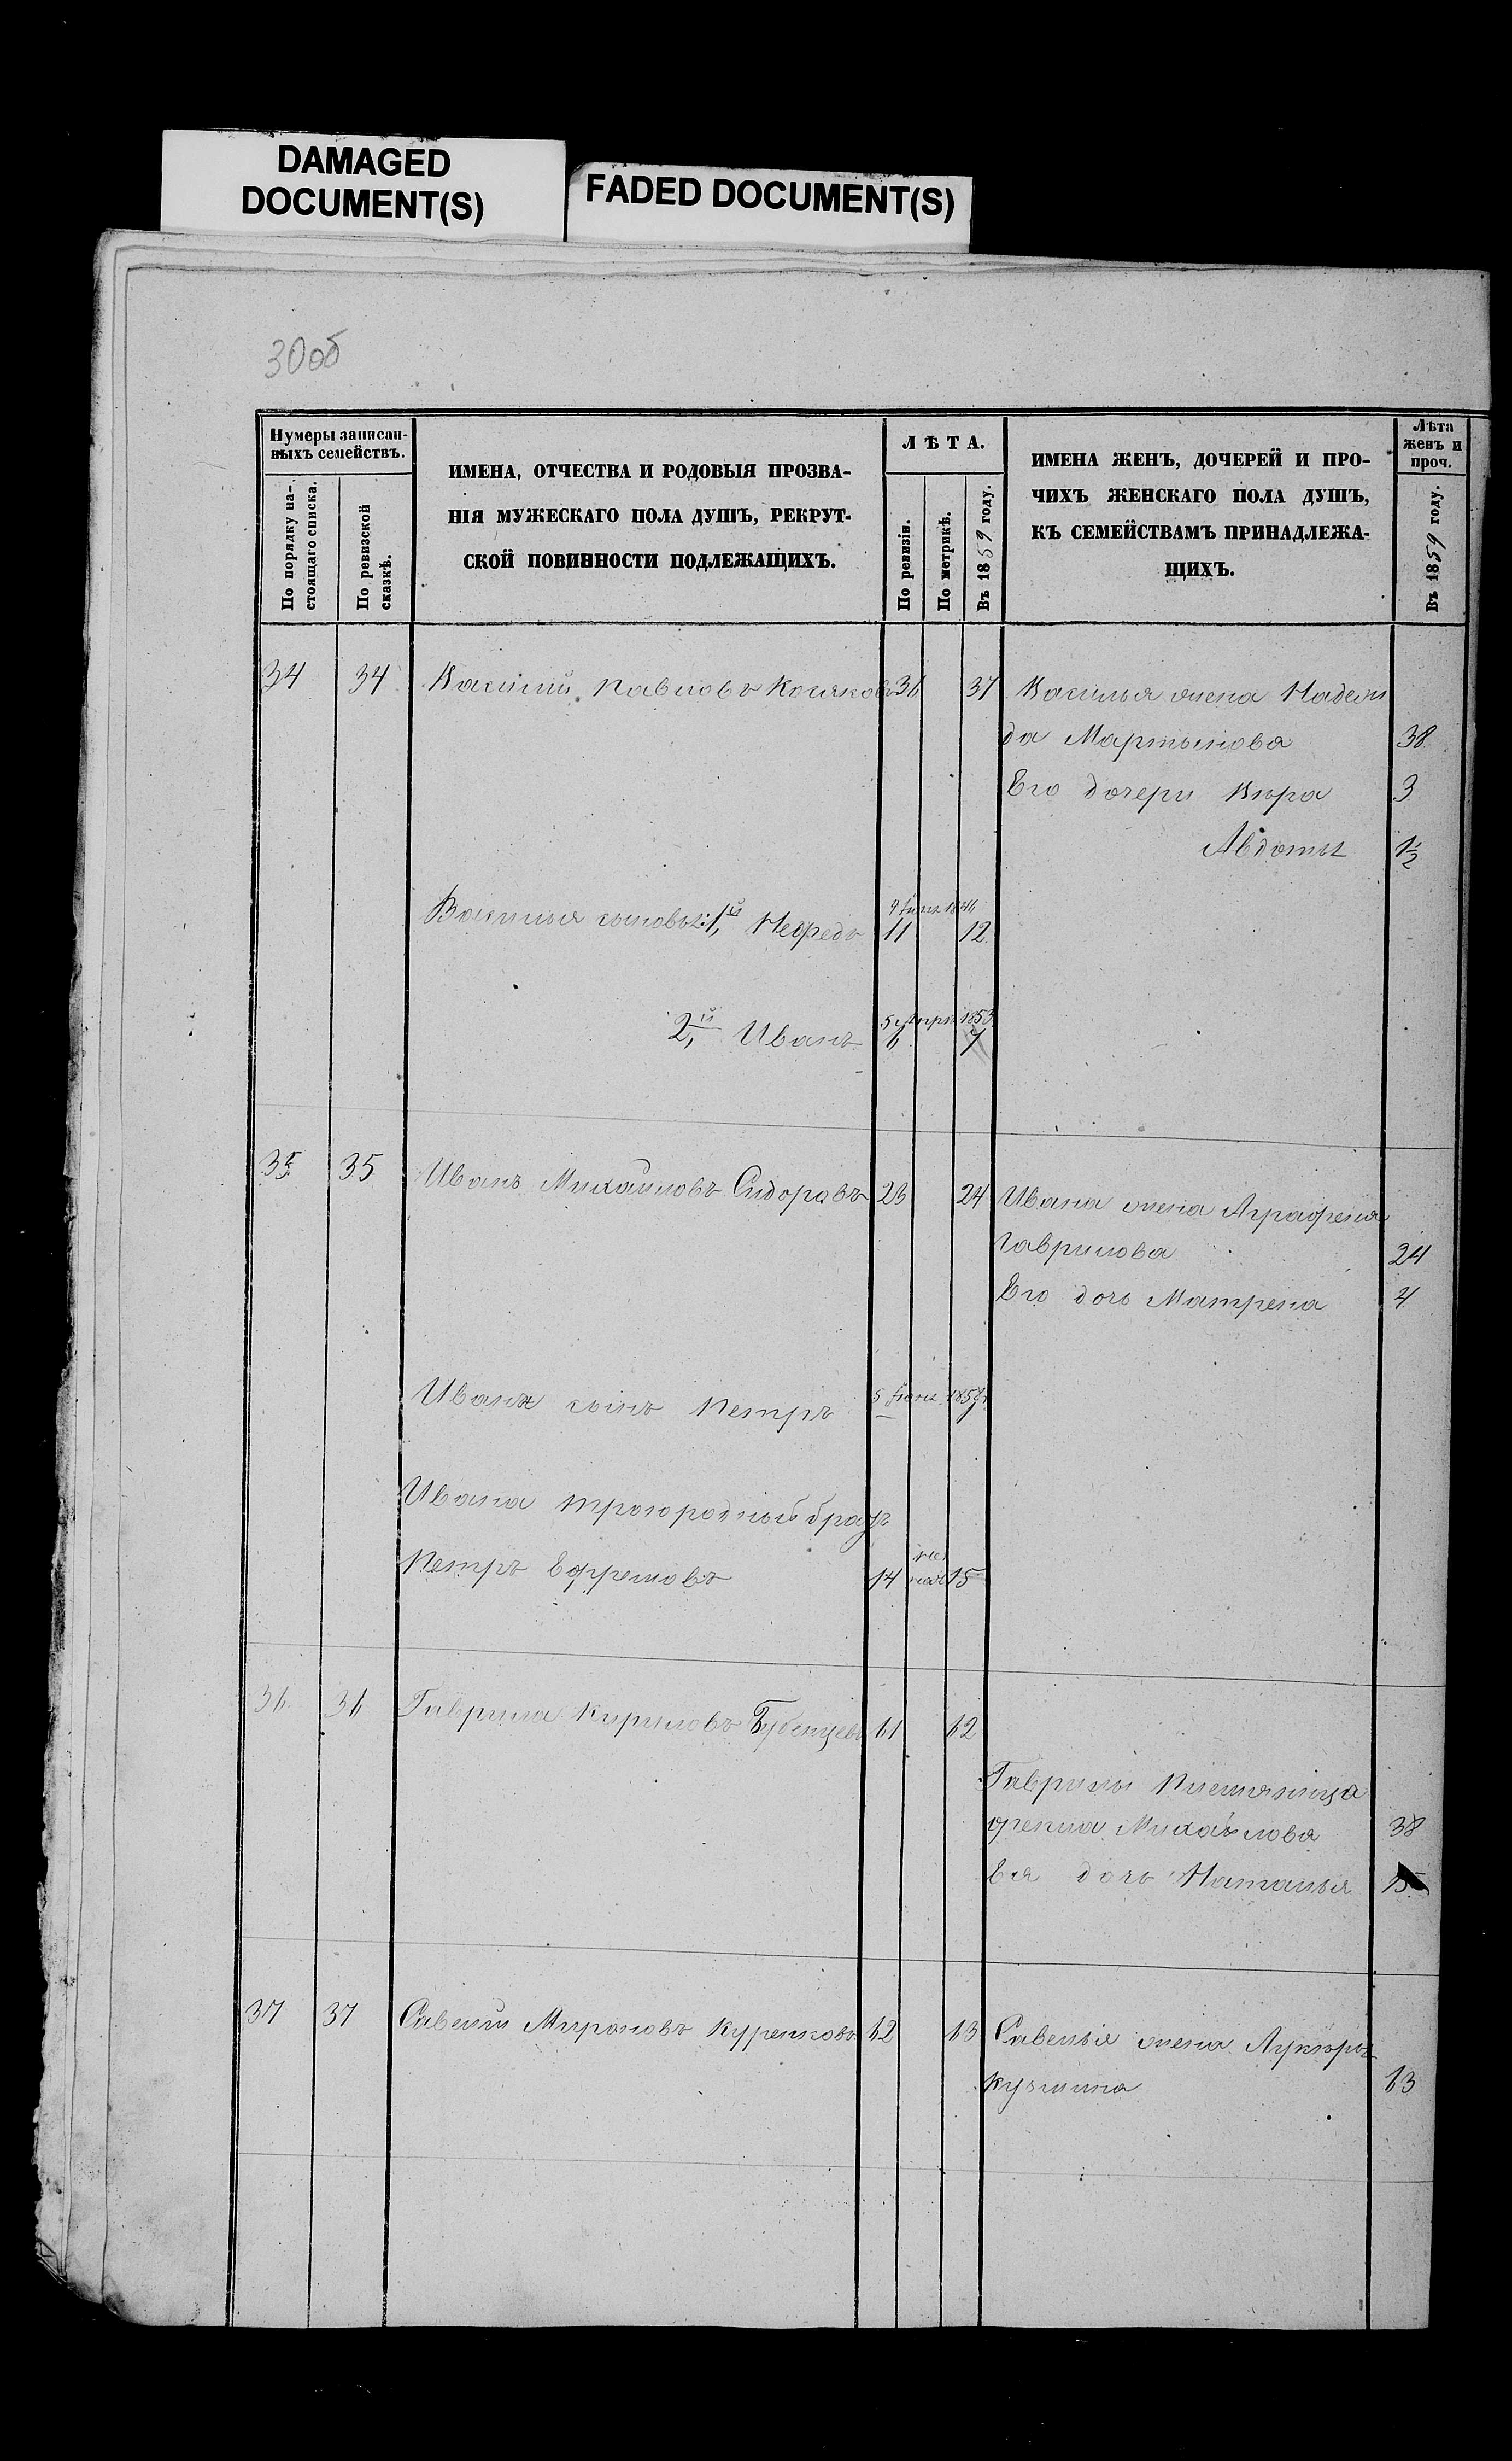 DAMAGED
DOCUMENT(S)
FADED DOCUMENT(S)
30об
Нумеры записан-
ныхъ семействъ.
По порядку на-
стоящаго списка.
По ревизской
сказкѣ.
ИМЕНА, ОТЧЕСТВА И РОДОВЫЯ ПРОЗВА-
НІЯ МУЖЕСКАГО ПОЛА ДУШЪ, РЕКРУТ-
СКОЙ ПОВИННОСТИ ПОДЛЕЖАЩИХЪ.
ЛѢТА.
По ревизіи.
По метрикѣ.
Въ 1859 году.
ИМЕНА ЖЕНЪ, ДОЧЕРЕЙ И ПРО-
ЧИХЪ ЖЕНСКАГО ПОЛА ДУШЪ,
КЪ СЕМЕЙСТВАМЪ ПРИНАДЛЕЖА-
ЩИХЪ.
Лѣта
женъ и
проч.
Въ 1859 году.
34 34 Василий Павловъ Косяковъ 36 37 Василья жена Надеж
да Мартынова 38
Его дочери Вѣра 3
Авдотья 1½
9 Iюня 1846
Василья сыновья: 1й Нефедъ 11 12
5 Апрѣ 1853
2й Иванъ 6 7
35 35 Иванъ Михайловъ Сидоровъ 23 24 Ивана жена Аграфена
Гаврилова 24
Его дочь Матрена 4
Ивана сынъ Петръ 5 Iюня
Ивана троюродный братъ
Петръ Ефремовъ 14 15
36 36 Гаврила Кириловъ 61 62
Гаврилы племяница
Михайлова 38
Ея дочь Наталья 15
37 37 Савелий Мироновъ Куренковъ 62 63 Савелья жена Лукѣрья
Кузмина 63